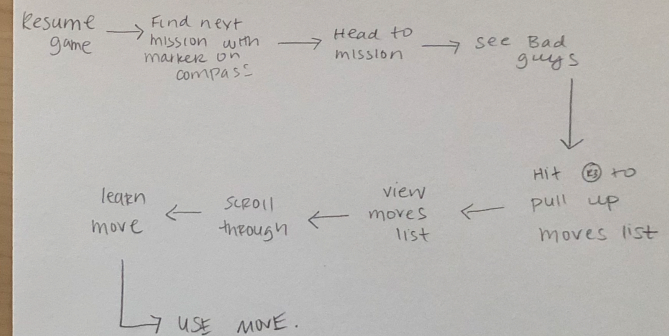 Resume
game
Find next
mission with
marker on
compass
Head to
mission
see Bad
guys
Hit R3 to
pull up
moves list
view
moves
list
scroll
through
learn
move
USE MOVE.